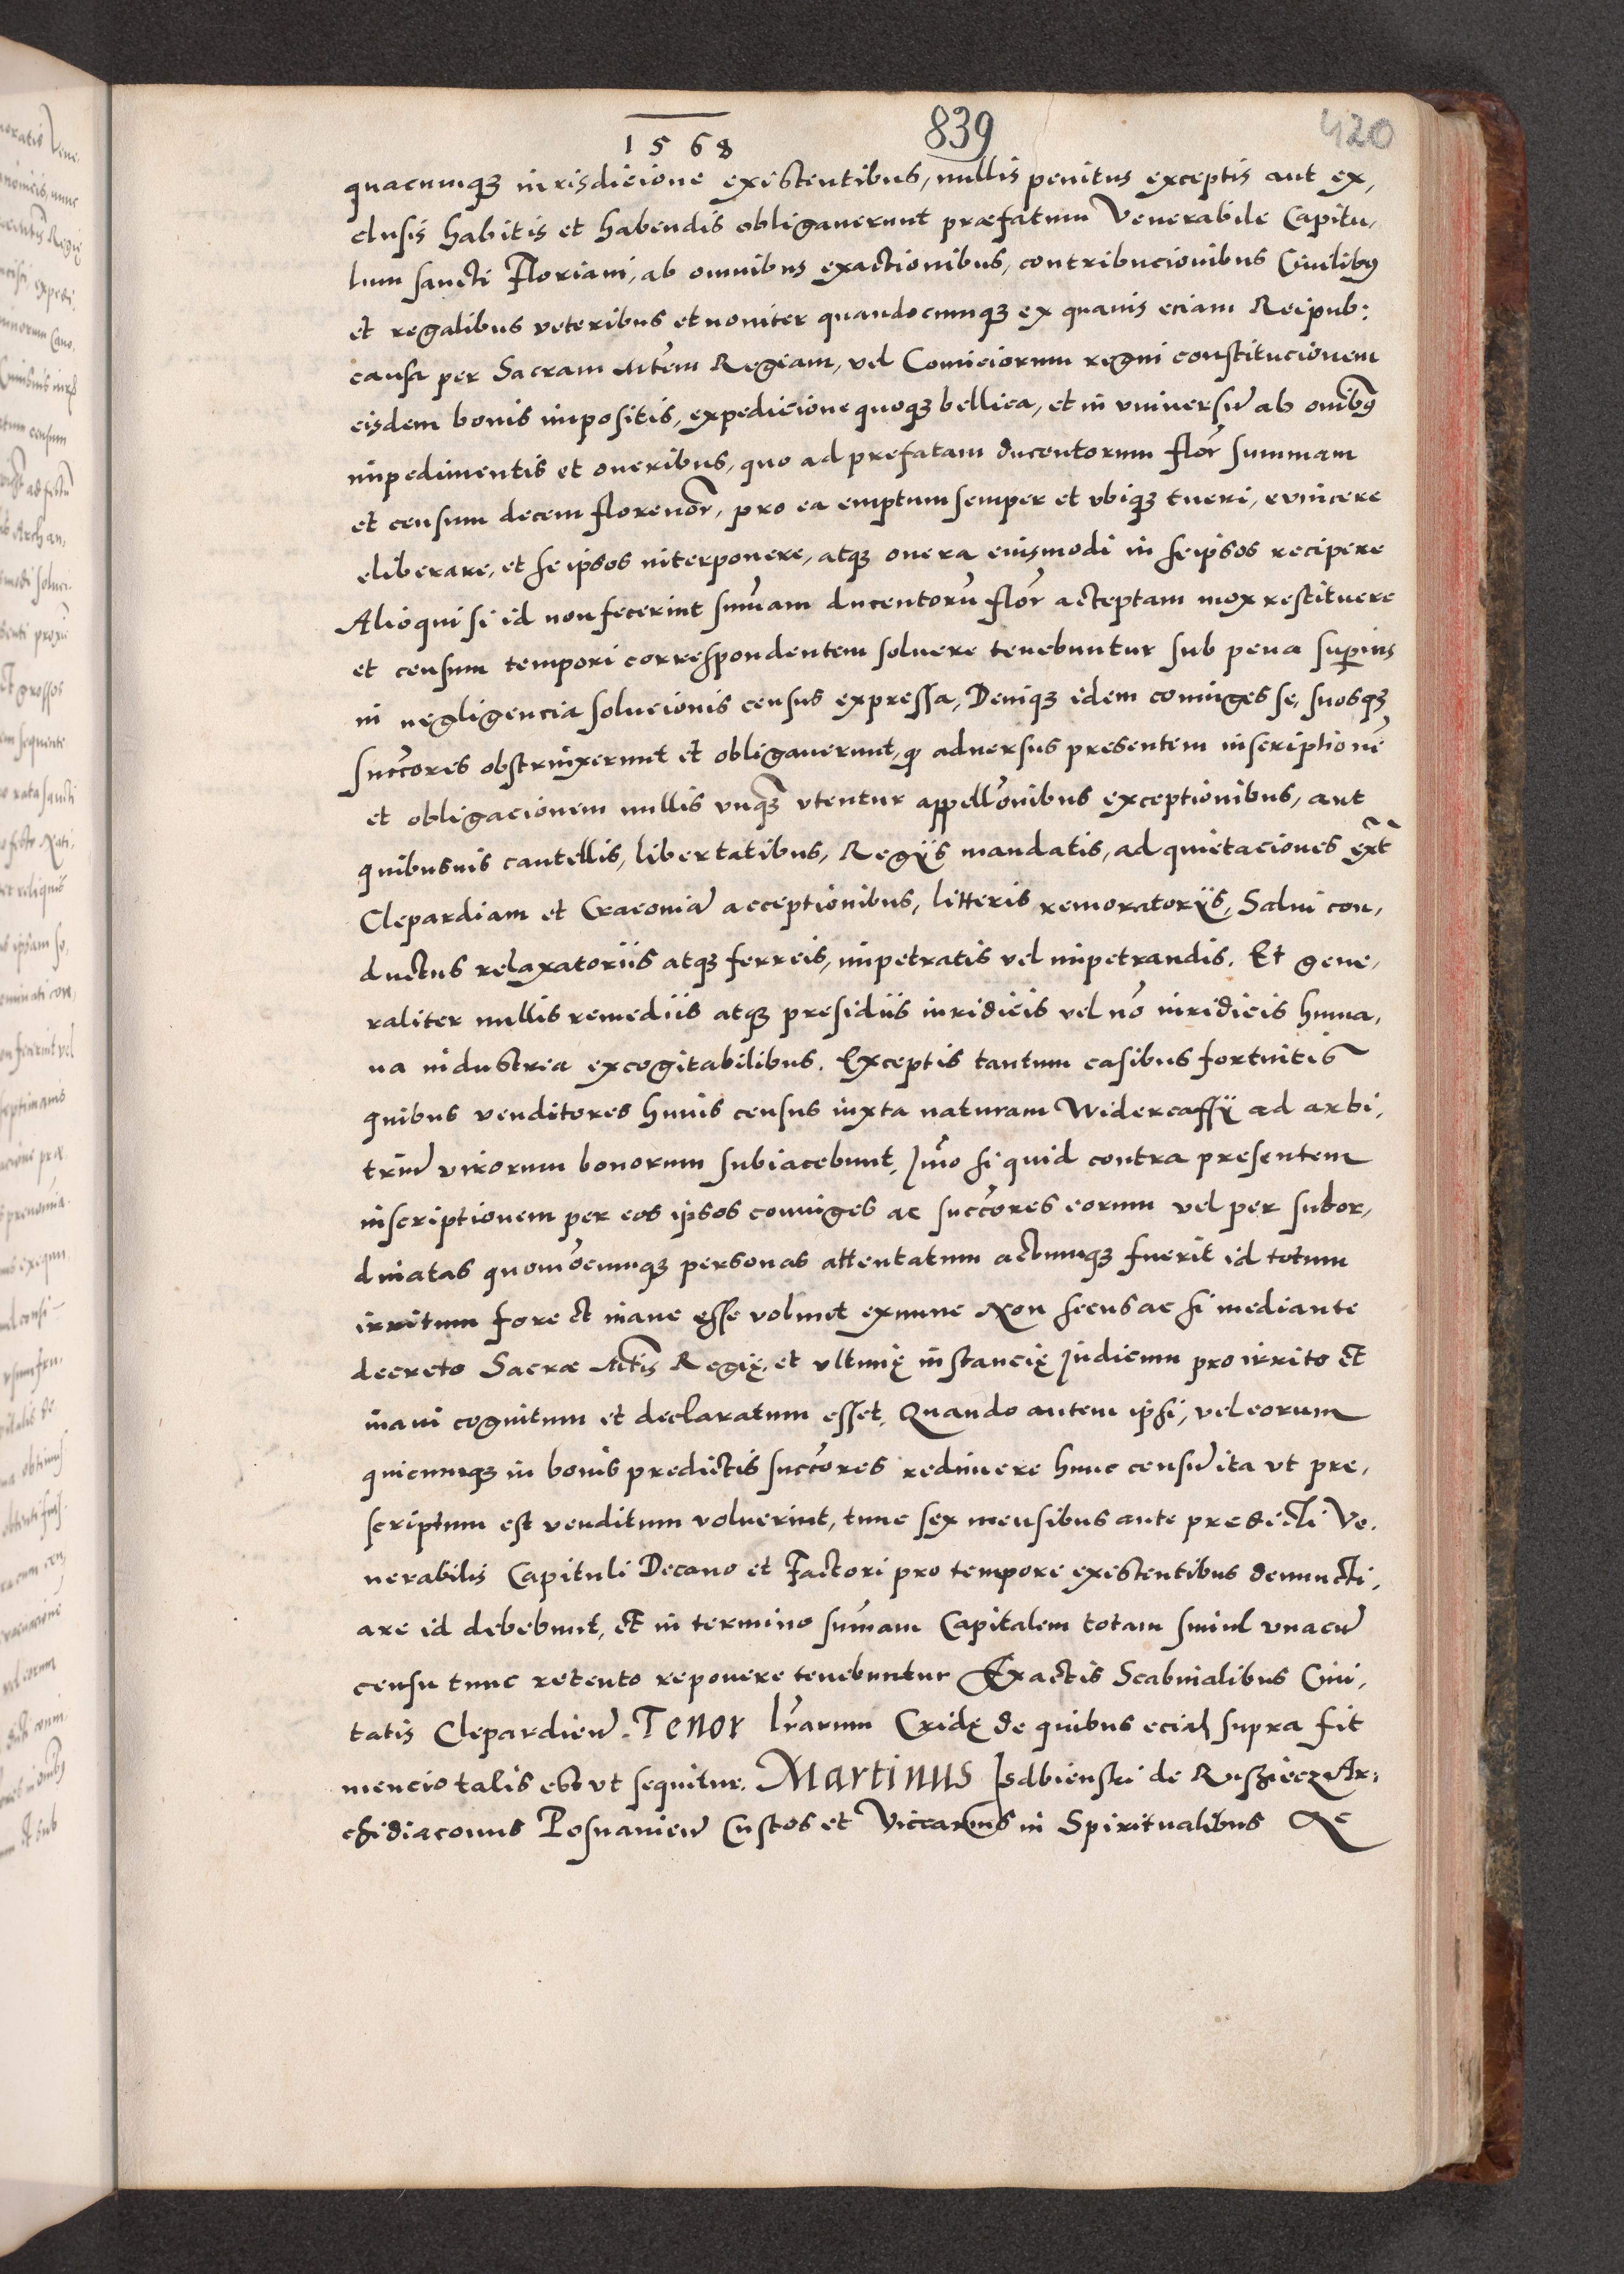 1568
839
420
quacumqꝫ iurisdicione existentibus, nullis penitus exceptis aut ex,
clusis habitis et habendis obligauerunt præfatum Venerabile Capitu,
lum sancti Floriani, ab omnibus exactionibus, contribucionibus Ciuilibꝰ
et regalibus veteribus et nouiter quandocumqꝫ ex quauis eciam Reipub:
causa per Sacram Mtem Regiam, vel Comiciorum regni constitucionem
eisdem bonis impositis, expedicione quoqꝫ bellica, et in vniversū ab om̄ibꝰ
impedimentis et oneribus, quo ad prefatam ducentorum flor̄ summam
et censum decem florenor̄, pro ea emptum semper et vbiqꝫ tueri, evincere
eliberare, et se ipsos interponere, atqꝫ onera eiusmodi in seipsos recipere
Alioqui si id non fecerint sum̄am ducentorū flor̄ acceptam mox restituere
et censum tempori correspondentem soluere tenebuntur sub pena superius
in negligencia solucionis census expressa, Deniqꝫ idem coniuges se, suosqꝫ
succ̄ores obstrinxerunt et obligauerunt, qꝫ aduersus presentem inscriptionē
et obligacionem nullis vnqꝫ vtentur appellōnibus exceptionibus, aut
quibusuis cautellis, libertatibus, Regijs mandatis, ad quietaciones ext̄
Clepardiam et Cracouiā acceptionibus, litteris remoratorijs, Salui con,
ductus relaxatoriis atqꝫ ferreis, impetratis vel impetrandis. Et gene,
raliter nullis remediis atqꝫ presidiis iuridicis vel nō iuridicis huma,
na industria excogitabilibus. Exceptis tantum casibus fortuitis
quibus venditores huius census iuxta naturam Widercaffij ad arbi,
triū virorum bonorum subiacebunt, Im̄o si quid contra presentem
inscriptionem per eos ipsos coniuges ac succ̄ores eorum vel per subor,
dinatas quomōcumqꝫ personas attentatum actumqꝫ fuerit id totum
irritum fore et inane esse volunt exnunc Non secus ac si mediante
decreto Sacræ Mtis Regię, et vltimę instancię Judicium pro irrito et
inani cognitum et declaratum esset, Quando autem ipsi, vel eorum
quicumqꝫ in bonis predictis succ̄ores redimere hunc censū ita vt pre,
scriptum est venditum voluerint, tunc sex mensibus ante predicti Ve,
nerabilis Capituli Decano et Factori pro tempore existentibus denuncti,
are id debebunt, et in termino sum̄am Capitalem totam simul vnacū
censu tunc retento reponere tenebuntur Ex actis Scabinalibus Ciui,
tatis Clepardien̄. Tenor l̄rarum Cridę de quibus eciam supra fit
mencio talis est vt sequitur. Martinus Isdbienski de Rusziecz Ar,
chidiaconus Posnanien̄ Custos et Viccarius in Spiritualibus &c